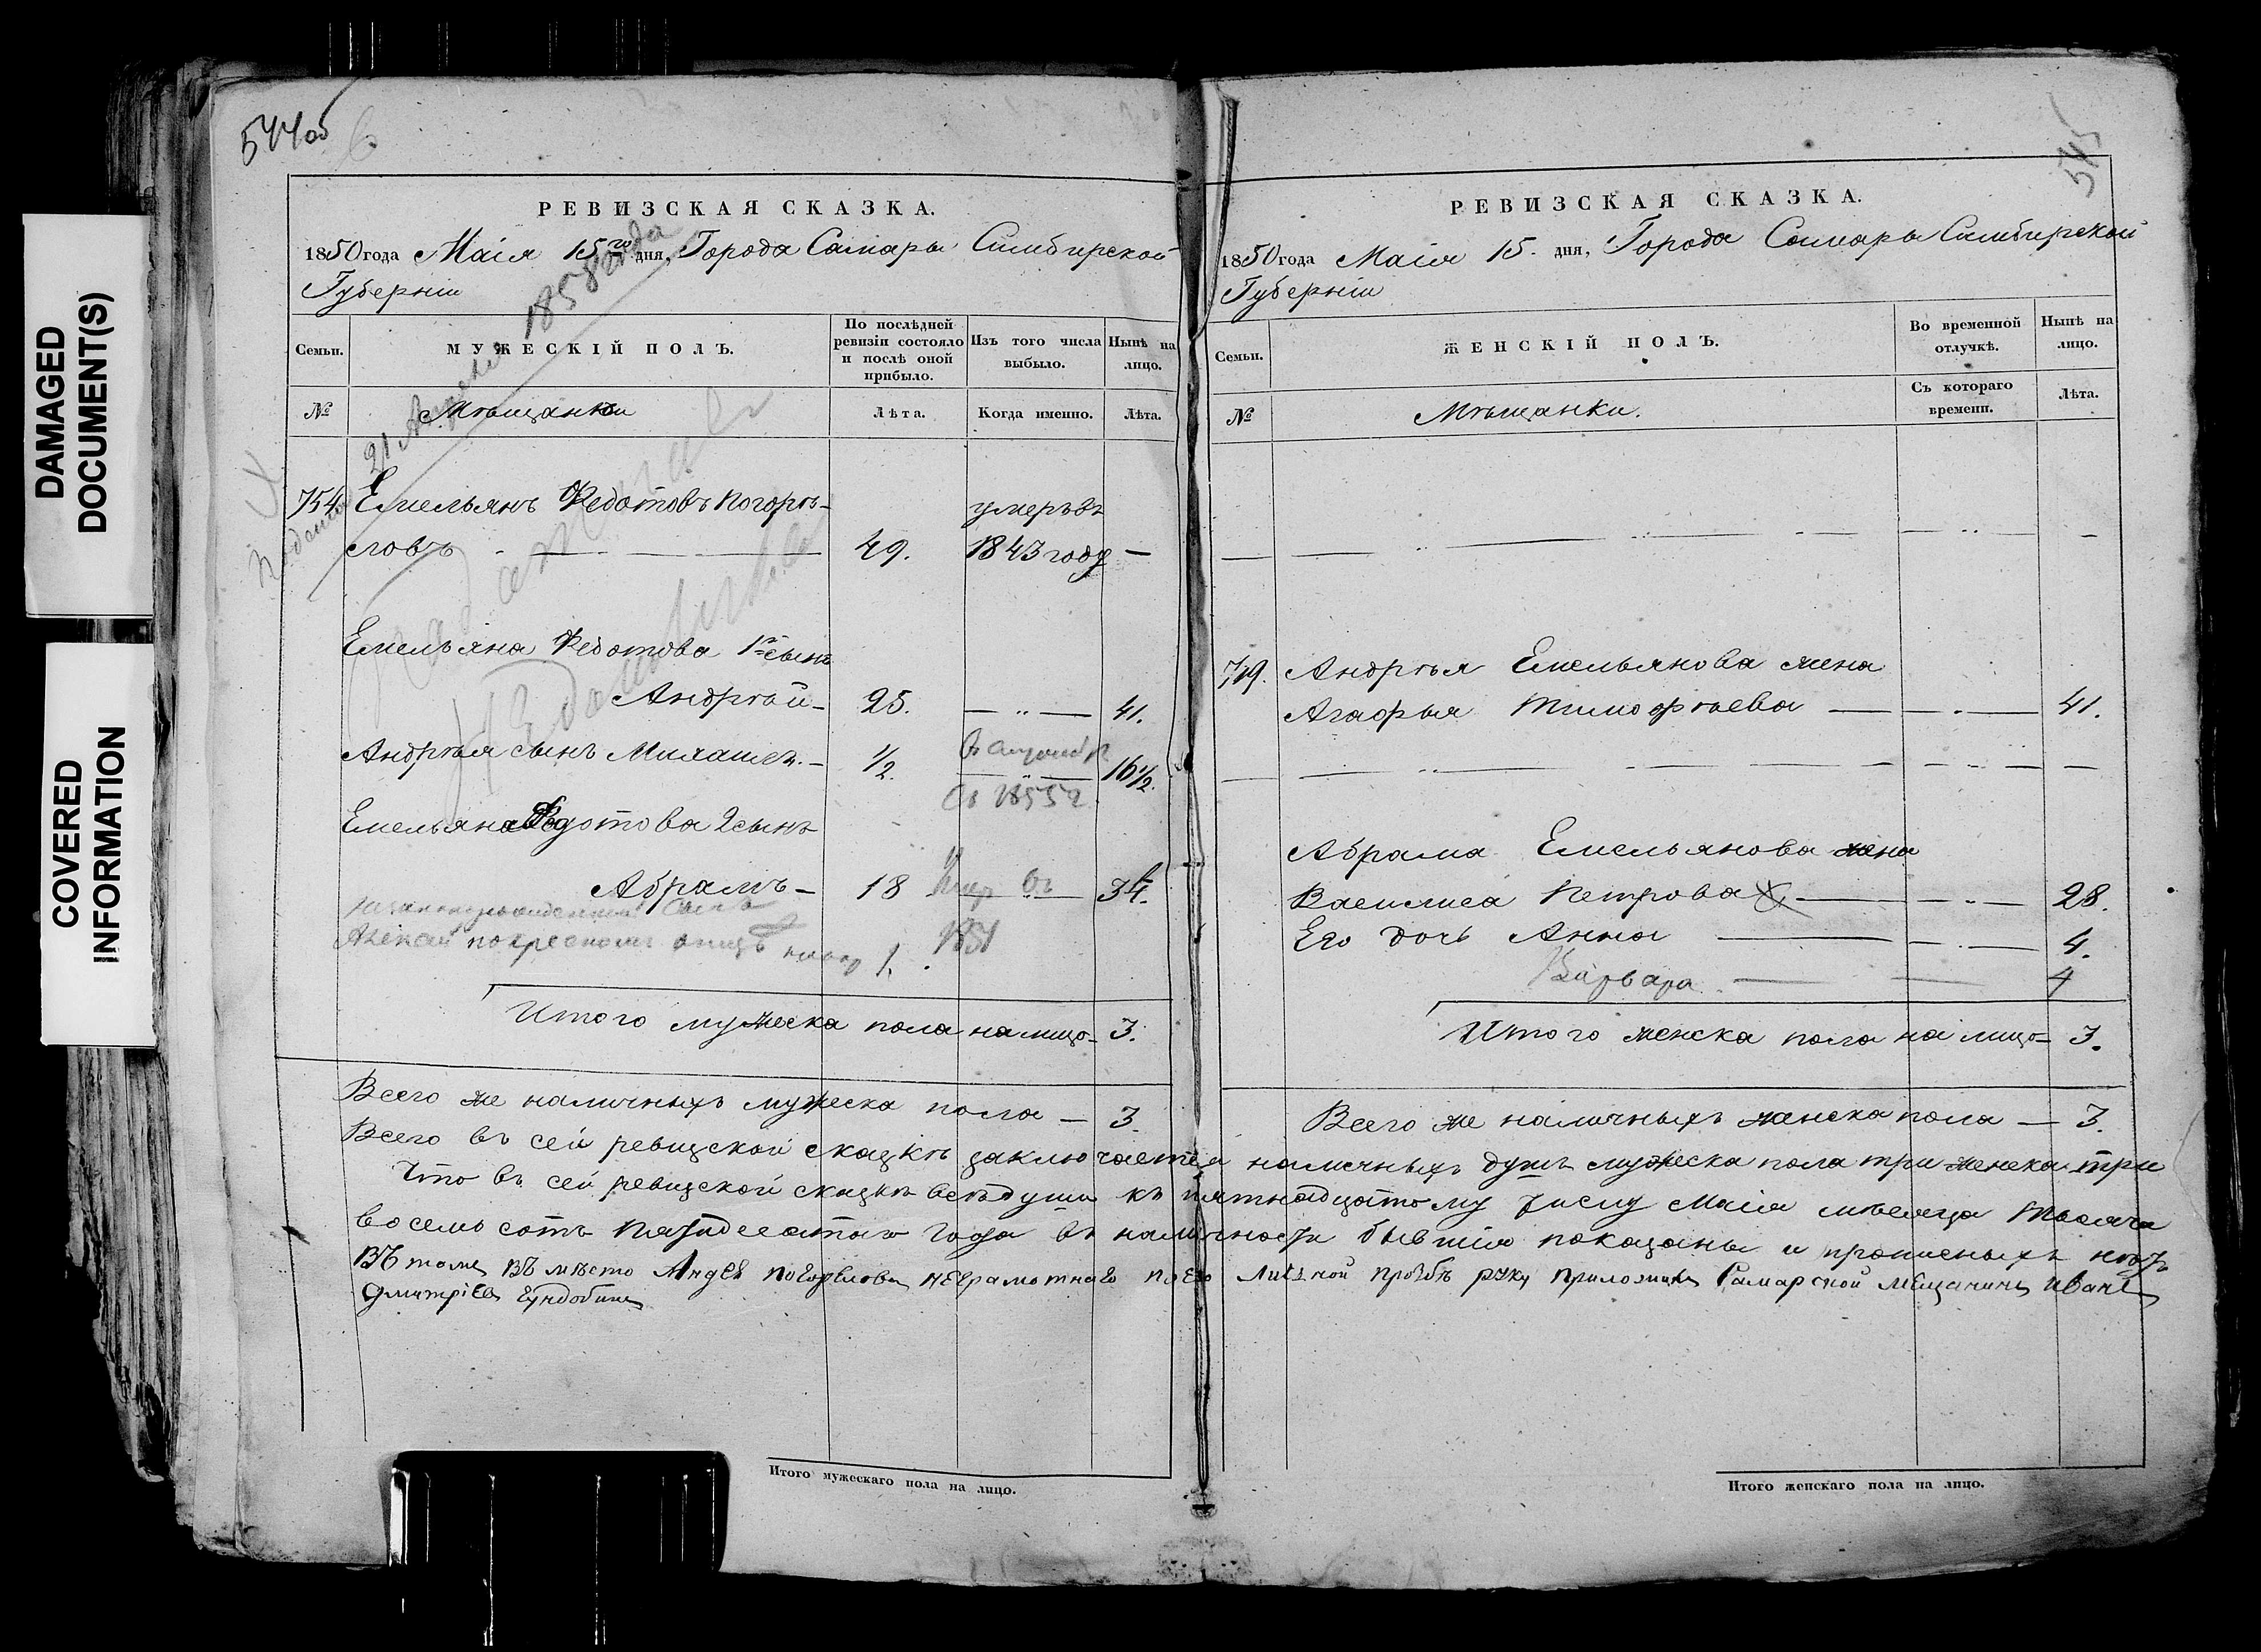 DAMAGED
DOCUMENT(S)
COVERED
INFORMATION
544об
РЕВИЗСКАЯ СКАЗКА.
1850 года Маія 15го дня, Города Самары Симбирской
Губерніи
Семьи.
МУЖЕСКІЙ ПОЛЪ.
По послѣдней
ревизіи состояло
и послѣ оной
прибыло.
Изъ того числа
выбыло.
Нынѣ на
лицо.
№
Мѣщанки
Лѣта.
Когда именно.
Лѣта.
1858 года
754 Емельянъ Федотовъ Погорѣ-
ловъ 49. умеръ въ 1843 году —
Емельяна Федотова 1й сынъ
Андрѣй 25. — 41.
Андрѣя сынъ 1/2. — 16 1/2.
Въ 1855 г
Емельяна Федотова 2 сынъ
Абрамъ — 18 — 34.
1851
сынъ
Итого мужеска пола на лицо — 3.
Всего же наличныхъ мужеска пола — 3.
545
РЕВИЗСКАЯ СКАЗКА.
1850 года Маія 15. дня, Города Самары Симбирской
Губерніи
Семьи.
ЖЕНСКІЙ ПОЛЪ.
Во временной
отлучкѣ.
Нынѣ на
лицо.
№
Мѣщанки.
Съ котораго
времени.
Лѣта.
749. Андрѣя Емельянова жена
Агафья Тимофѣева — 41.
Абрама Емельянова жена
Василиса Петрова — 28.
Его дочь Анна — 4.
Варвара — 4
Итого женска пола на лицо — 3.
Всего же наличныхъ женска пола — 3.
Всего въ сей ревизской сказкѣ заключается наличныхъ душъ мужеска пола три женска три
Что въ сей ревизской сказкѣ всѣ души къ пятнадцатому числу Маія мѣсяца тысяча
восемь сотъ пятидесятаго года въ наличности бывшія показаны и прописныхъ нѣтъ
Въ томъ въ мѣсто Андея Погорелова неграмотнаго по его личной прозбѣ руку приложилъ Самарской мещанинъ Иванъ
Дмитріевъ
Итого мужескаго пола на лицо.
Итого женскаго пола на лицо.